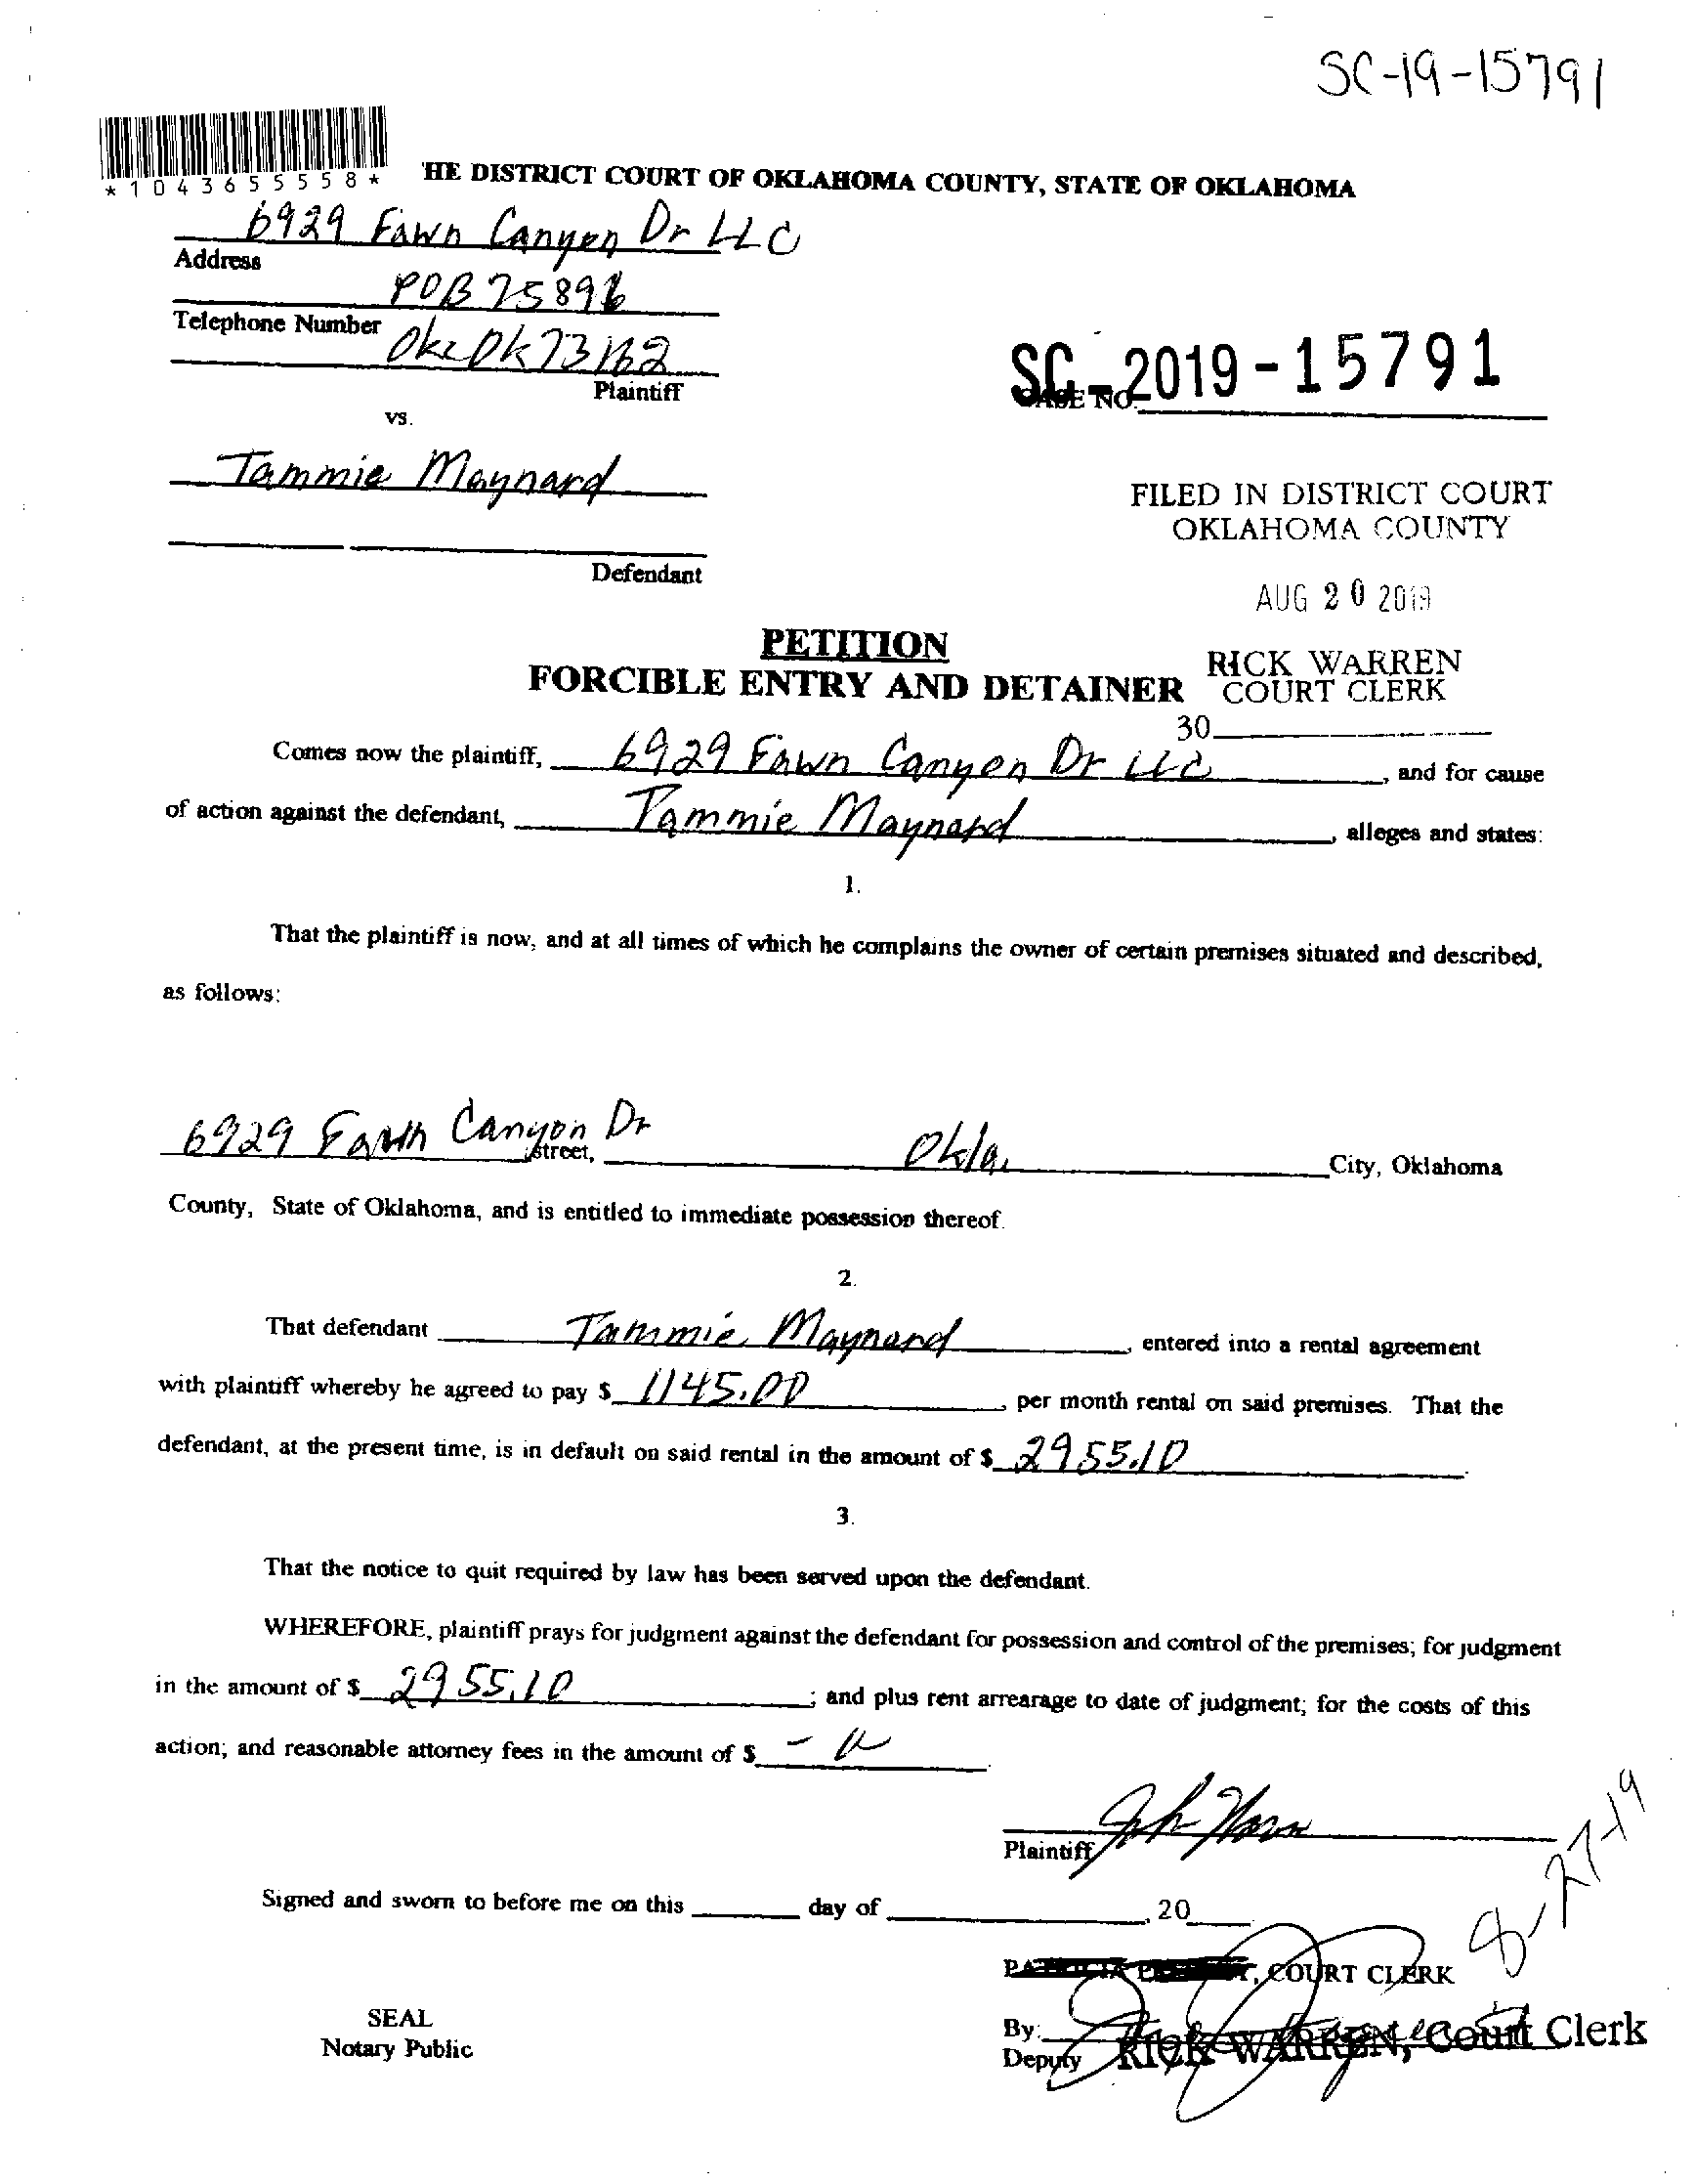 SC-19-15791
*1043655558*
HE DISTRICT COURT OF OKLAHOMA COUNTY, STATE OF OKLAHOMA
6929 Fawn Canyon Dr LLC
Address
POB 75896
Telephone Number
Okc Ok 73162
Plaintiff
SC-2019-15791
CASE NO.
vs.
Tammie Maynard
FILED IN DISTRICT COURT
OKLAHOMA COUNTY
Defendant
AUG 20 2019
PETITION
FORCIBLE ENTRY AND DETAINER
RICK WARREN
COURT CLERK
30
Comes now the plaintiff, 6929 Fawn Canyon Dr LLC, and for cause
of action against the defendant, Tammie Maynard, alleges and states:
1.
That the plaintiff is now, and at all times of which he complains the owner of certain premises situated and described,
as follows:
6929 Fawn Canyon Dr street, Okla. City, Oklahoma
County, State of Oklahoma, and is entitled to immediate possession thereof.
2.
That defendant Tammie Maynard, entered into a rental agreement
with plaintiff whereby he agreed to pay $ 1145.00, per month rental on said premises. That the
defendant, at the present time, is in default on said rental in the amount of $ 2955.10.
3.
That the notice to quit required by law has been served upon the defendant.
WHEREFORE, plaintiff prays for judgment against the defendant for possession and control of the premises; for judgment
in the amount of $ 2955.10; and plus rent arrearage to date of judgment; for the costs of this
action; and reasonable attorney fees in the amount of $ -
Plaintiff
8-27-19
Signed and sworn to before me on this day of , 20
, COURT CLERK
SEAL
Notary Public
By:
Deputy
RICK WARREN, Court Clerk